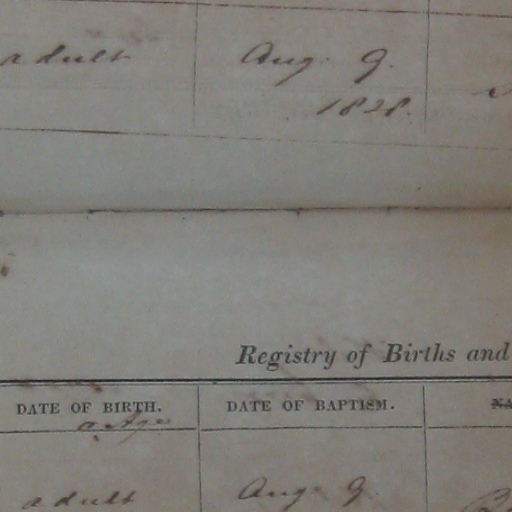 adult Aug. 9.
1828.
Registry of Births and
DATE OF BIRTH. DATE OF BAPTISM.
adult Aug. 9